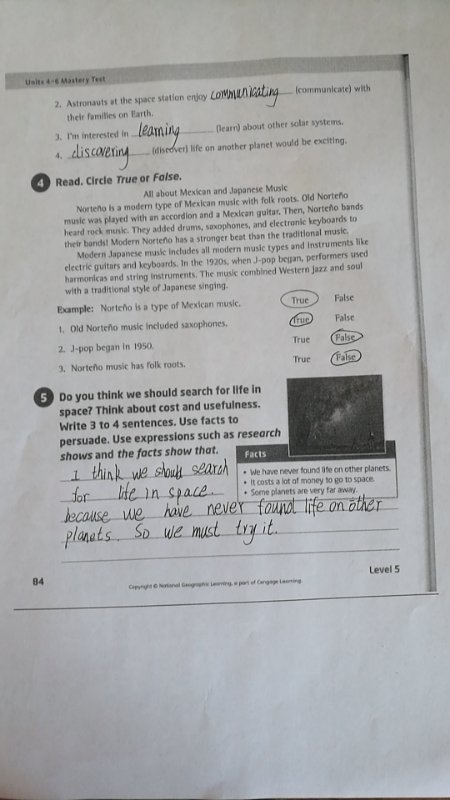 Units 4–6 Mastery Test
2. Astronauts at the space station enjoy communicating (communicate) with
their families on Earth.
3. I'm interested in learning (learn) about other solar systems.
4. discovering (discover) life on another planet would be exciting.
4 Read. Circle True or False.
All about Mexican and Japanese Music
Norteño is a modern type of Mexican music with folk roots. Old Norteño
music was played with an accordion and a Mexican guitar. Then, Norteño bands
heard rock music. They added drums, saxophones, and electronic keyboards to
their bands! Modern Norteño has a stronger beat than the traditional music.
Modern Japanese music includes all modern music types and instruments like
electric guitars and keyboards. In the 1920s, when J-pop began, performers used
harmonicas and string instruments. The music combined Western Jazz and soul
with a traditional style of Japanese singing.
Example: Norteño is a type of Mexican music. True False
1. Old Norteño music included saxophones. True False
2. J-pop began in 1950. True False
3. Norteño has folk roots. True False
5 Do you think we should search for life in
space? Think about cost and usefulness.
Write 3 to 4 sentences. Use facts to
persuade. Use expressions such as research
shows and the facts show that.
Facts
• We have never found life on other planets.
• It costs a lot of money to go to space.
• Some planets are very far away.
I think we should search
for life in space.
because we have never found life on other
planets. So we must try it.
84
Copyright © National Geographic Learning, a part of Cengage Learning.
Level 5